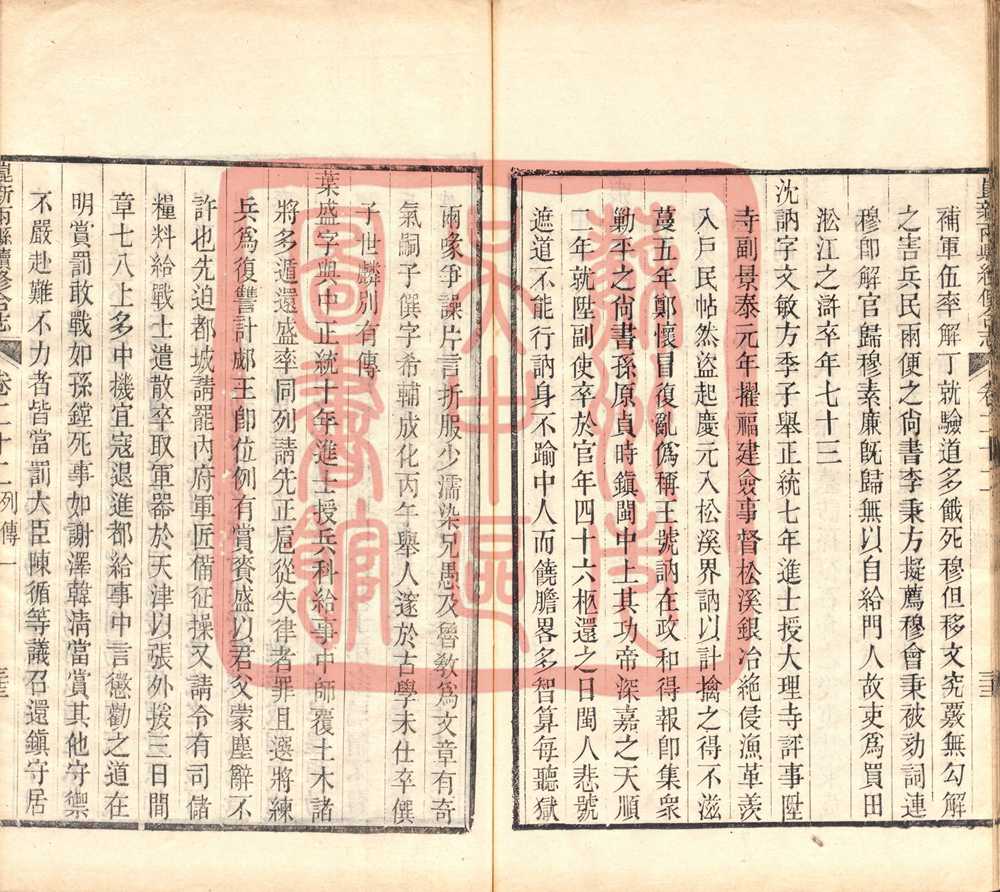 補軍伍率解丁就驗道多餓死穆但移文究覈無勾解
之害兵民兩便之尚書李秉方擬薦穆會秉被劾詞連
穆卽解官歸穆素廉旣歸無以自給門人故吏爲買田
淞江之滸卒年七十三
沈訥字文敏方季子舉正統七年進士授大理寺評事陞
寺副景泰元年擢福建僉事督松溪銀冶絶侵漁革羨
入戸民帖然盜起慶元入松溪界訥以計擒之得不滋
蔓五年鄭懷冒復亂僞稱王號訥在政和得報卽集衆
勦平之尚書孫原貞時鎭閩中上其功帝深嘉之天順
二年就陞副使卒於官年四十六柩還之日閩人悲號
遮道不能行訥身不踰中人而饒膽畧多智算每聽獄
兩彖爭譟片言折服少濡染兄愚及魯敎爲文章有奇
氣嗣子僎字希輔成化丙午舉人邃於古學未仕卒僎
子世麟別有傳
葉盛字與中正統十年進士授兵科給事中師覆土木諸
將多遁還盛率同列請先正扈從失律者罪且選將練
兵爲復讐計郕王卽位例有賞賚盛以君父蒙塵辭不
許也先迫都城請罷內府軍匠備征操又請令有司儲
糧料給戰士遣散卒取軍器於天津以張外援三日間
章七八上多中機宜寇退進都給事中言懲勸之道在
明賞罰敢戰如孫鏜死事如謝澤韓淸當賞其他守禦
不嚴赴難不力者皆當罰大臣陳循等議召還鎭守居
崑新兩縣續修合志
卷二十二
列傳一
蘇州市
吳中區
圖書館